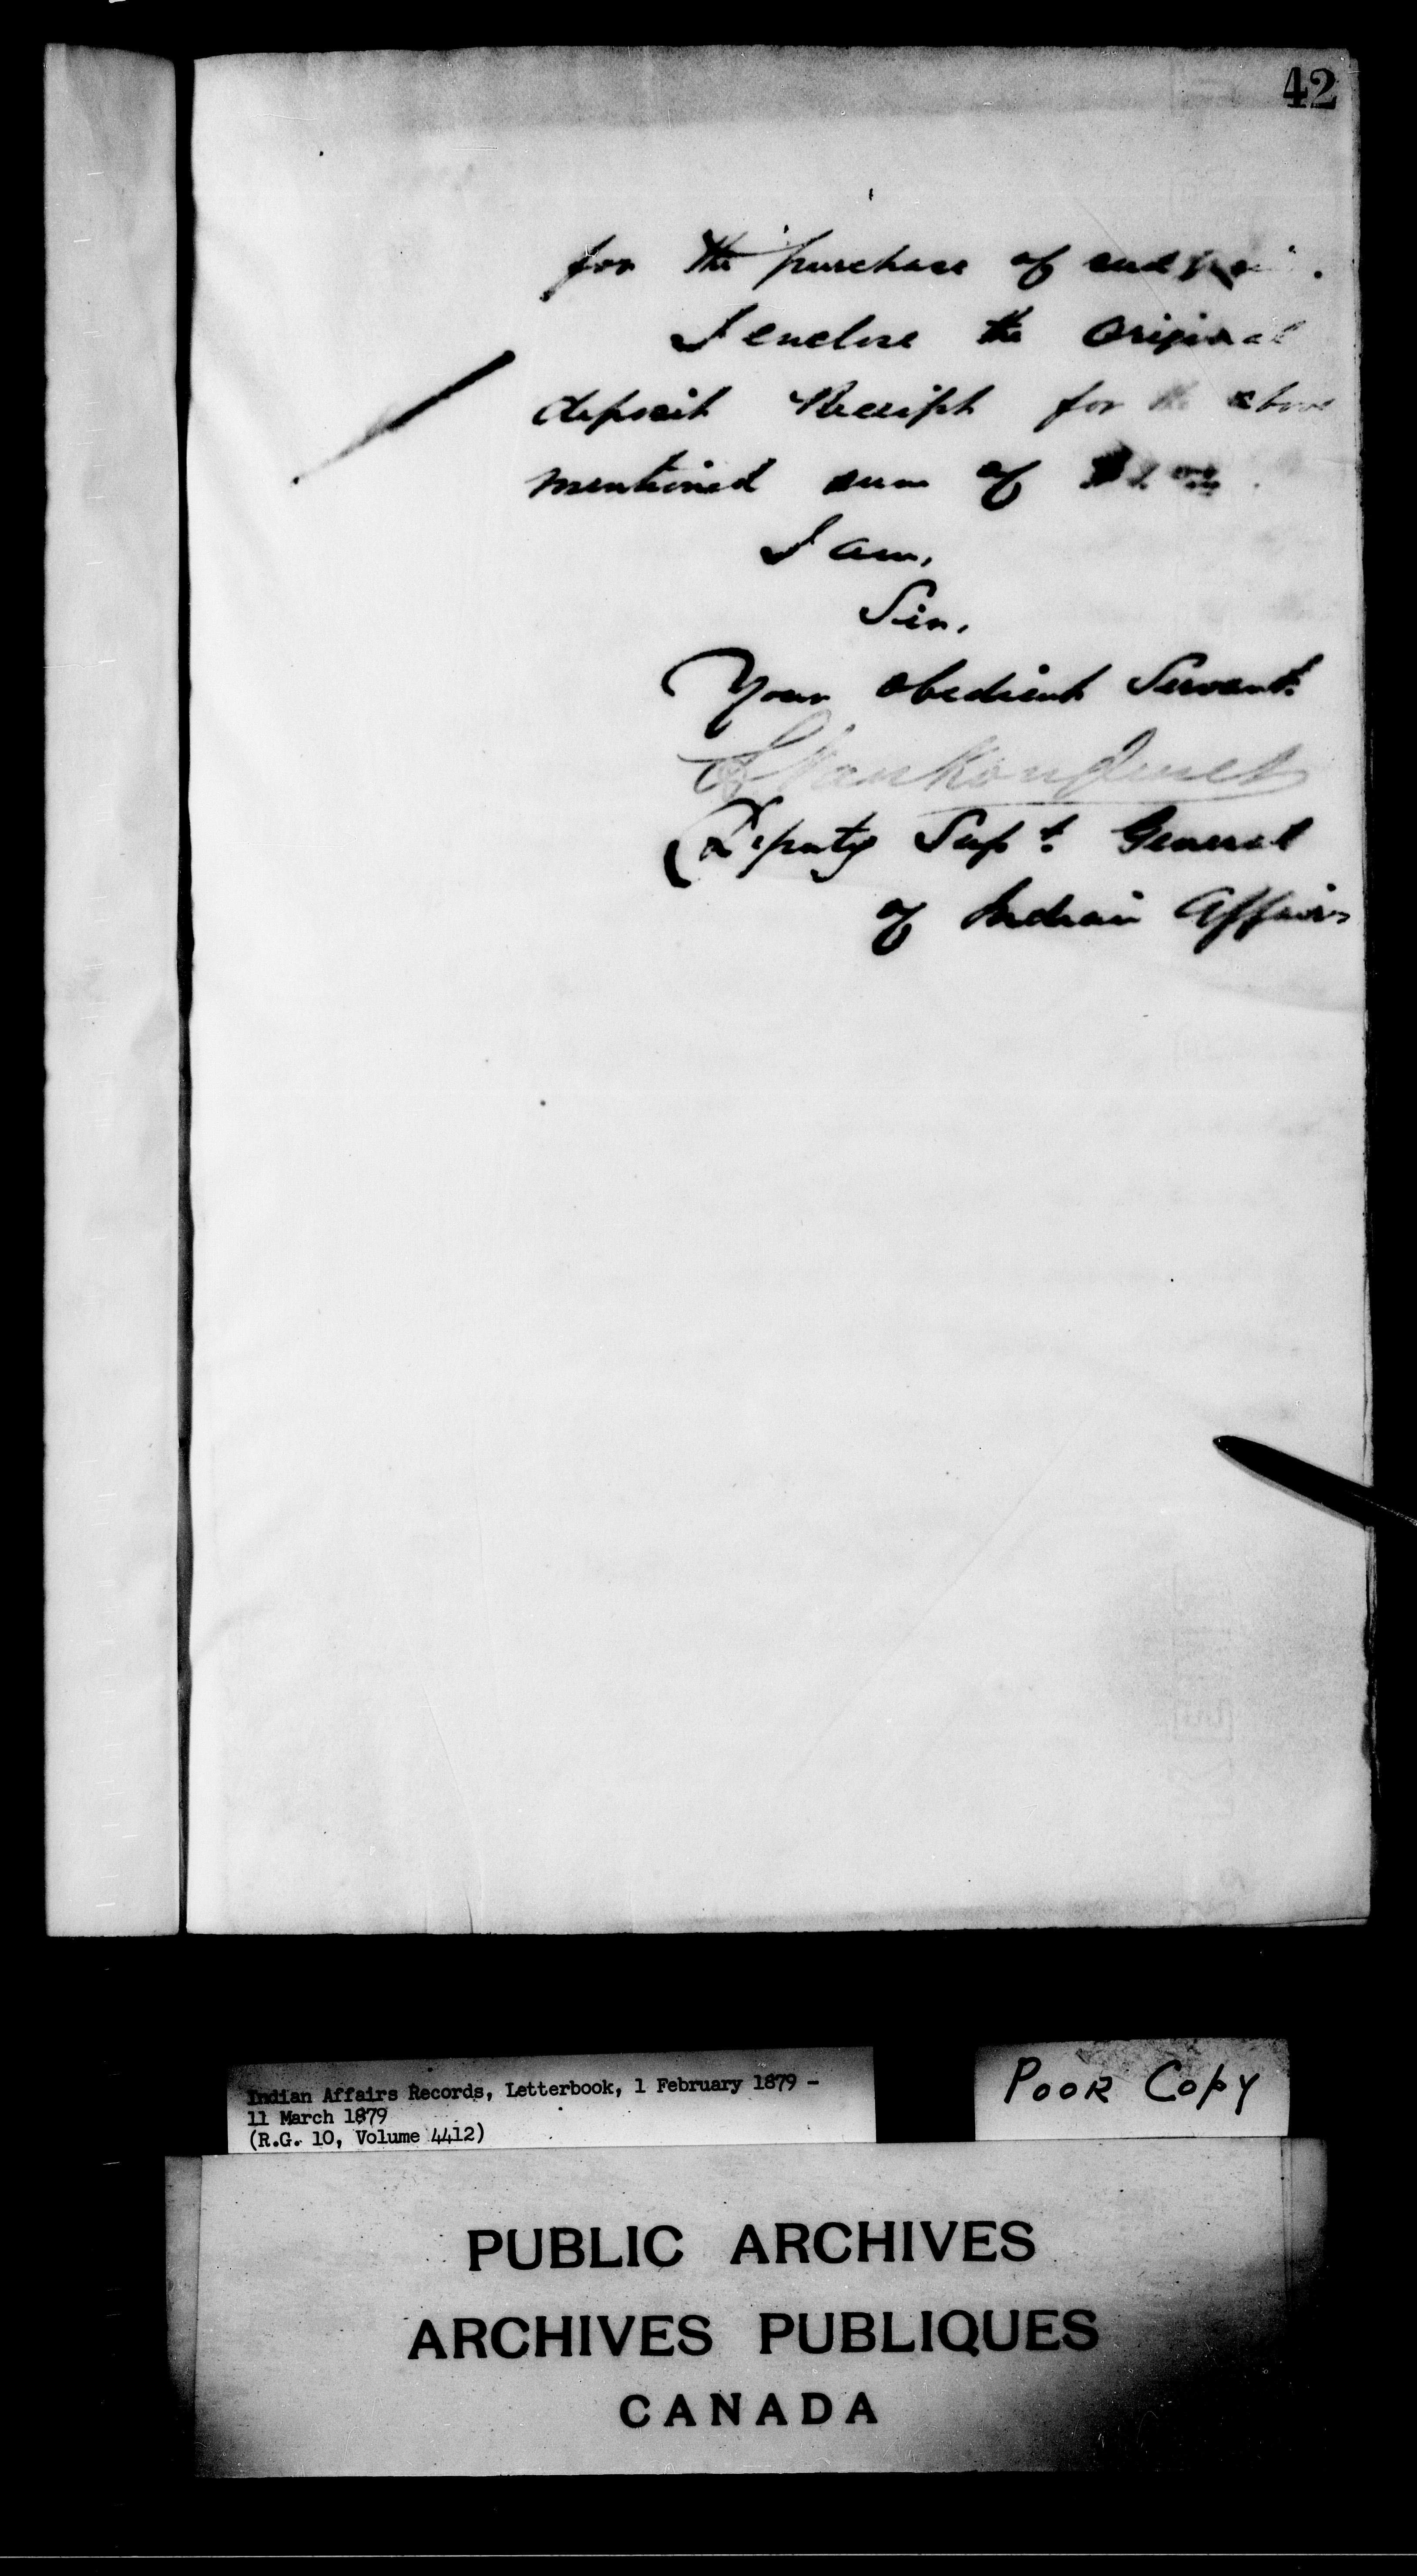 42
for the purchase of seed
I enclose the original
deposit Receipt for the above
mentioned sum of
I am,
Sir,
Your obedient Servant
L VanKoughnet
Deputy Supt. General
of Indian Affairs
Indian Affairs Records, Letterbook, 1 February 1879 -
11 March 1879
(R.G. 10, Volume 4412)
POOR COPY
PUBLIC ARCHIVES
ARCHIVES PUBLIQUES
CANADA